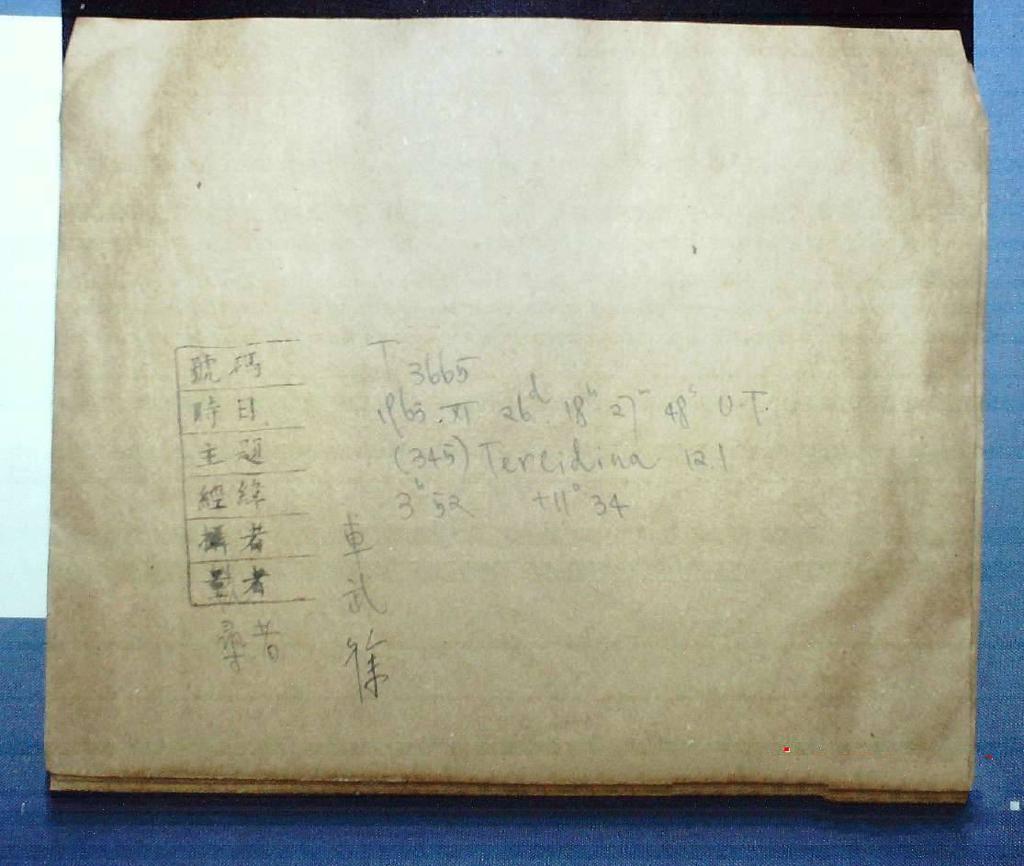 號碼 T 3665
時日 1965.XI 26ᵈ. 18ʰ 27ᵐ 48ˢ U.T.
主題 (345) Tercidina 12.1
經緯 3ʰ 52 +11° 34
攝者 車
量者 武
尋者 徐